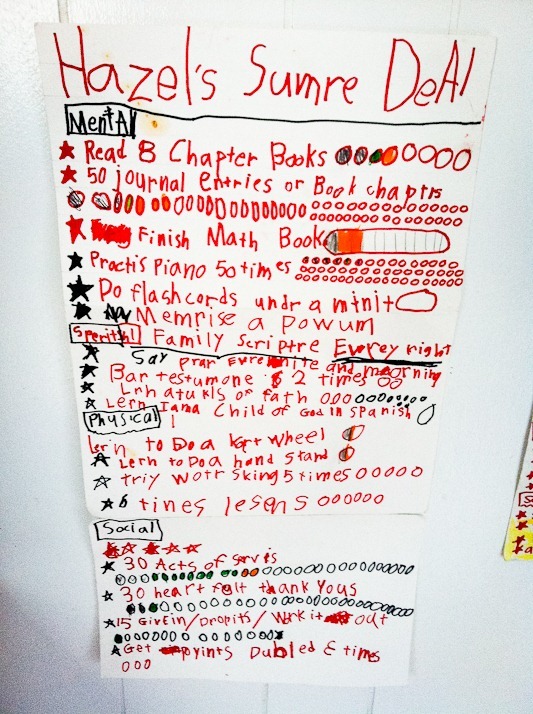 Hazel's Sumre DeAl
MentAl
Read 8 Chapter Books
50 journal Entries or Book chaptrs
Finish Math Book
Practis Piano 50 times
Do flashcords undr a minit
Memrise a Powum
Sperithl Family Scriptre Everey night
Say prar Evre nite and moorning
Bar testumone 2 times
Lrn atukls of fath
Lern I ama Child of God in SPanish
Physical
lern to Do a kart wheel
Lern to Do a hand Stand
triy wotr sking 5 times
6 tines lesens
Social
30 Acts of Servis
30 heart felt thank Yous
15 GiveIn/Dropits/Work it out
Get poyints Dubled 3 times